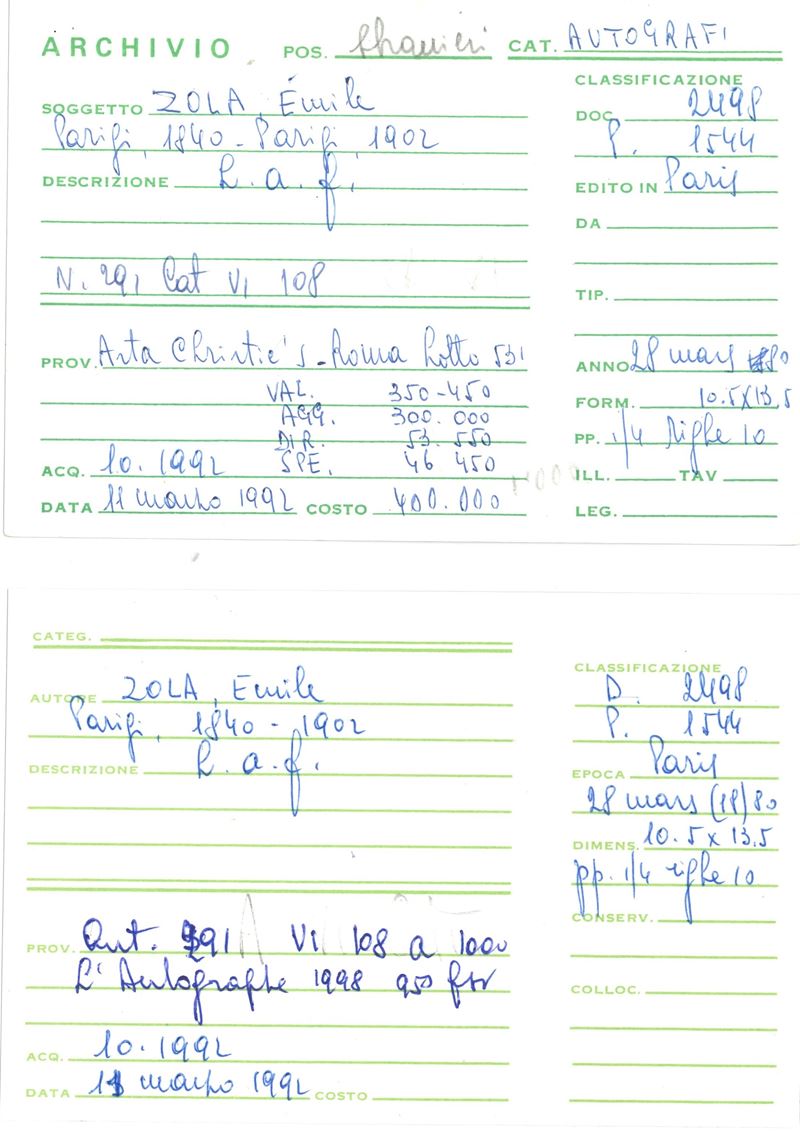 ARCHIVIO POS. Stranieri CAT. AUTOGRAFI
SOGGETTO ZOLA, Émile
Parigi, 1840 - Parigi, 1902
DESCRIZIONE L. a. f.
N. 291 Cat VI 108
PROV. Asta Christie's - Roma Lotto 531
VAL. 350-450
AGG. 300.000
DIR. 53.550
SPE. 46 450
ACQ. 10.1992
DATA 11 marzo 1992 COSTO 400.000
CLASSIFICAZIONE
DOC 2498
P. 1544
EDITO IN Paris
DA
TIP.
ANNO 28 mars 1880
FORM. 10.5X13.5
PP. 1/4 righe 10
ILL. TAV
LEG.
CATEG.
AUTORE ZOLA, Emile
Parigi, 1840 - 1902
DESCRIZIONE L. a. f.
PROV. 291 VI 108 a 1000
L'Autographe 1998 950 fsv
ACQ. 10.1992
DATA 11 marzo 1992 COSTO
CLASSIFICAZIONE
D. 2498
P. 1544
EPOCA Paris
28 mars (18)80
DIMENS. 10.5 x 13.5
pp. 1/4 righe 10
CONSERV.
COLLOC.